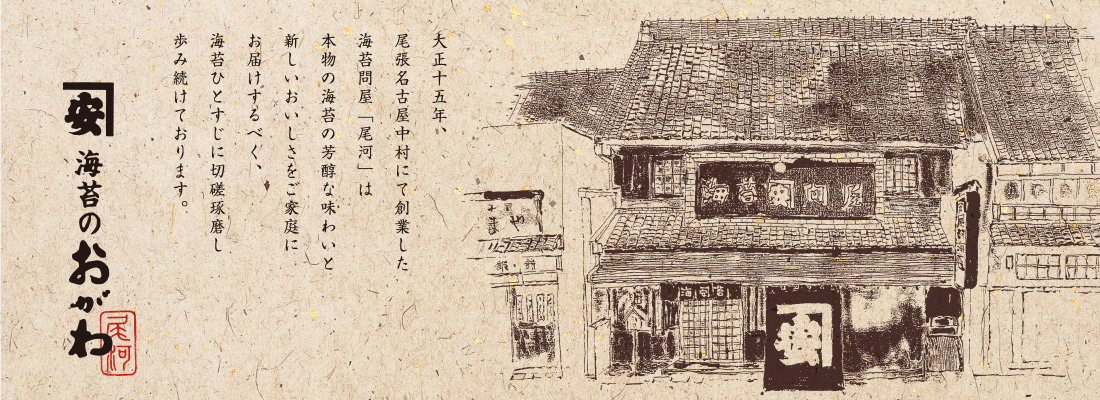 大正十五年、
尾張名古屋中村にて創業した
海苔問屋「尾河」は
本物の海苔の芳醇な味わいと
新しいおいしさをご家庭に
お届けするべく、
海苔ひとすじに切磋琢磨し
歩み続けております。
安
海苔のおがわ
尾河
海苔安問屋
安